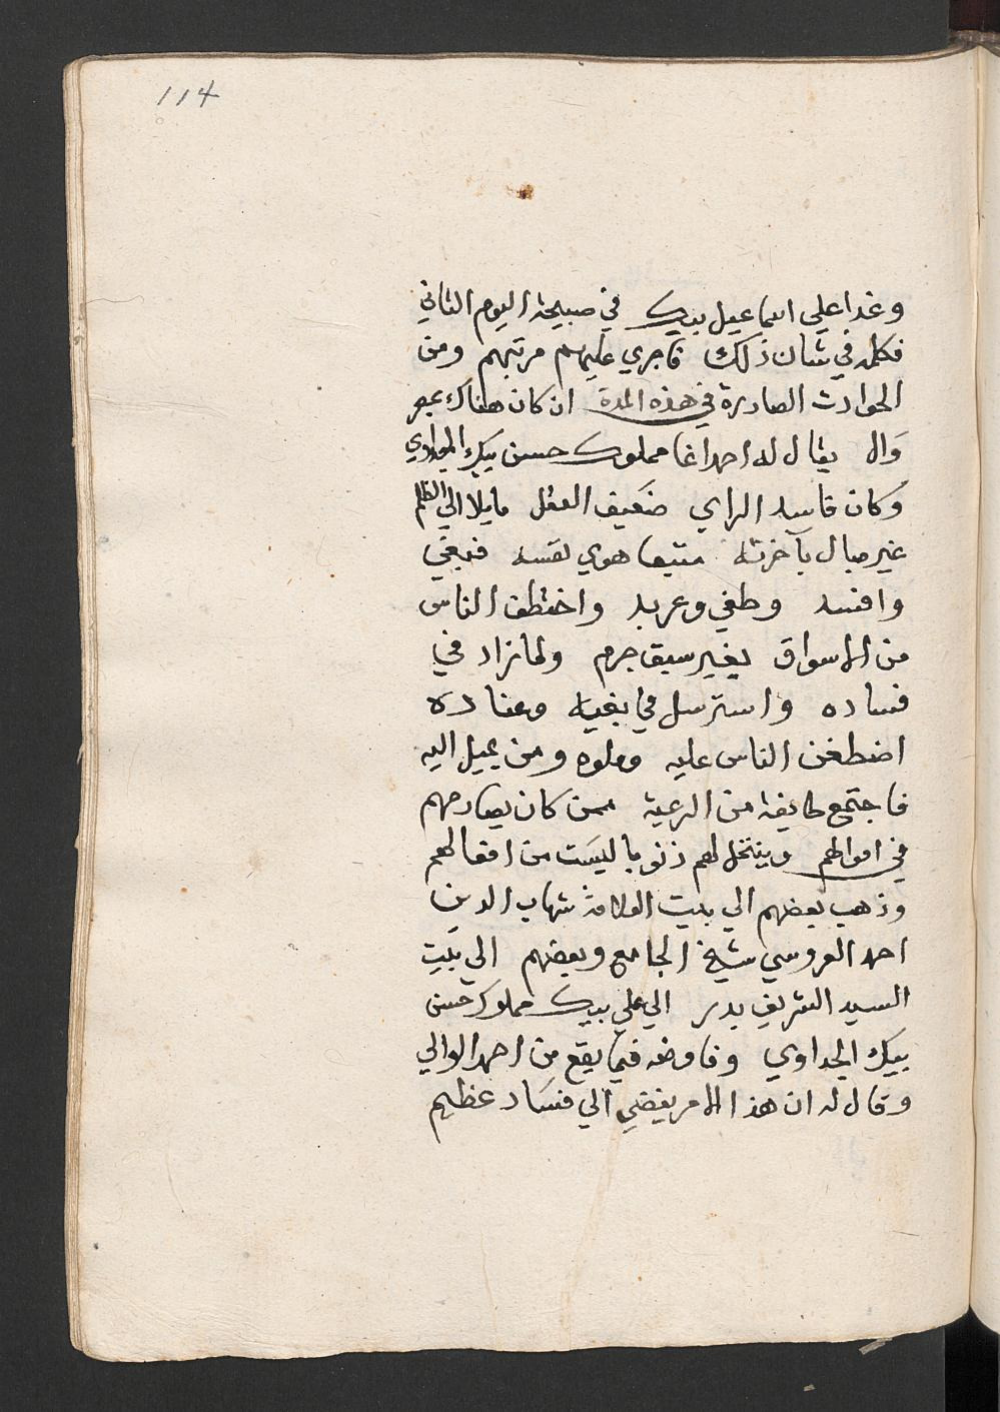 114
وغدا علي اسماعيل بيك في صبيحة اليوم الثاني
فكلمه في شان ذلك فاجري عليهم مرتبهم ومن
الحوادث الصادرة في هذه المدة ان كان هناك بمصر
وَال يقال له احمد اغا مملوك حسن بيك الجداوي
وكان فاسد الراي ضعيف العقل مايلا الي الظلم
غير مبال بآخرته متبعا هوي نفسه فبغي
وافسد وطغي وعربد واختطف الناس
من الاسواق بغير سبق جرم ولما زاد في
فساده واسترسل في بغيه وعناده
اضطغن الناس عليه وملوه ومن يميل اليه
فاجتمع طايفة من الرعية ممن كان يصادرهم
في اموالهم وينتحل لهم ذنوبا ليسَت من افعالهم
وذهب بعضهم الي بيت العلامة شهاب الدين
احمد العروسي شيخ الجامع وبعضهم الي بيَت
السيد الشريف بدر الي علي بيك مملوك حسن
بيك الجداوي وفاوضه فيما يقع من احمد الوالي
وقال له ان هذا الامر يفضي الي فسَاد عظيم